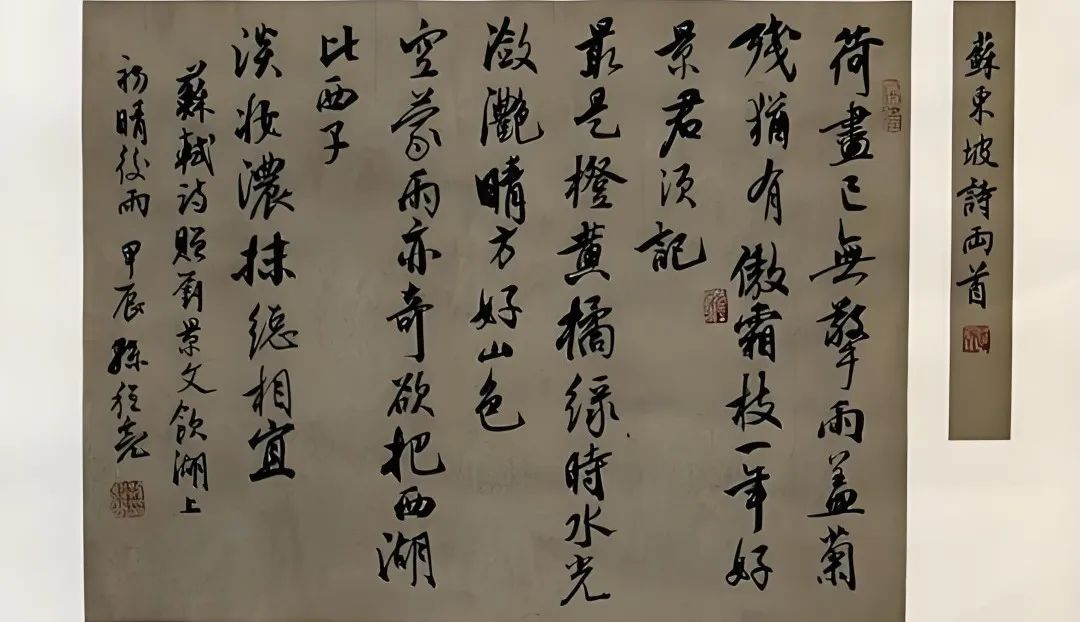 蘇東坡詩兩首
荷盡已無擎雨蓋菊
残猶有傲霜枝一年好
景君須記
最是橙黄橘緑時水光
瀲灧晴方好山色
空蒙雨亦奇欲把西湖
比西子
淡妝濃抹總相宜
蘇軾詩贈劉景文飲湖上
初晴後雨 甲辰 孫